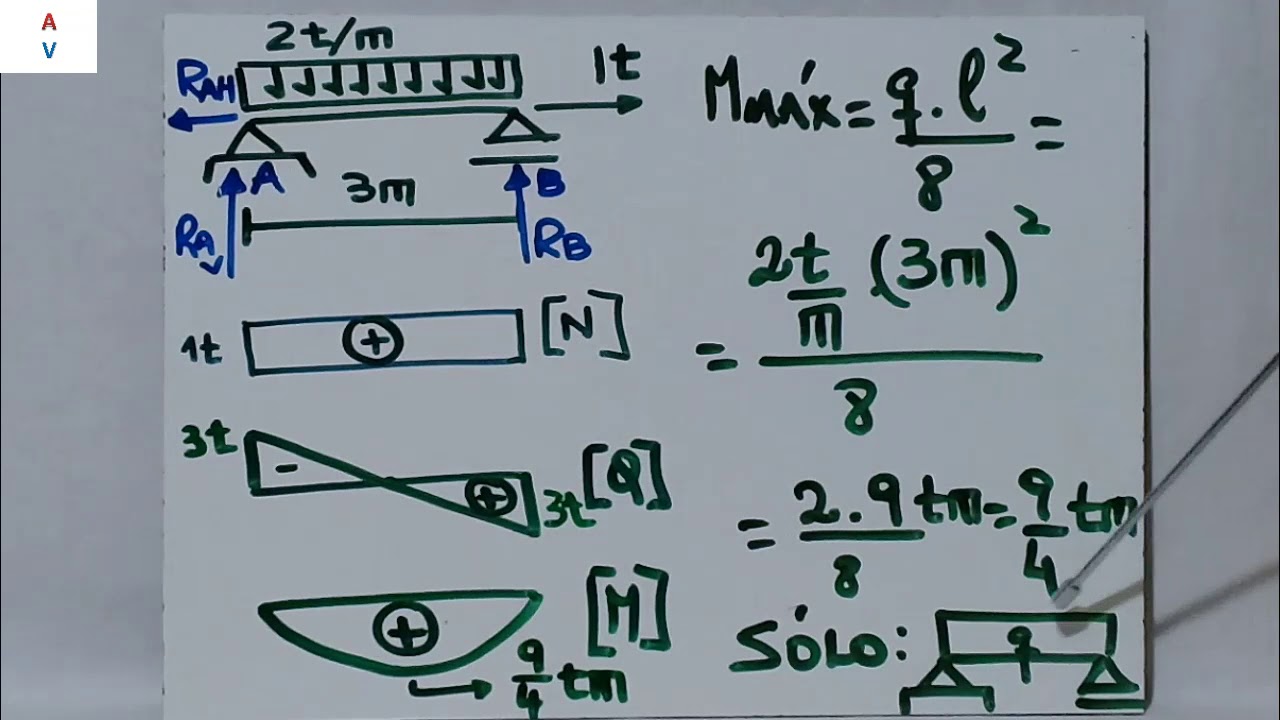 A
V
2t/m
1t
RAH
A
B
3m
RAV
RB
1t
+
[N]
3t
-
+
3t
[Q]
+
[M]
9/4 tm
Mmáx = q.l²/8 =
= 2t/m (3m)²/8
= 2.9/8 tm = 9/4 tm
SÓLO:
q